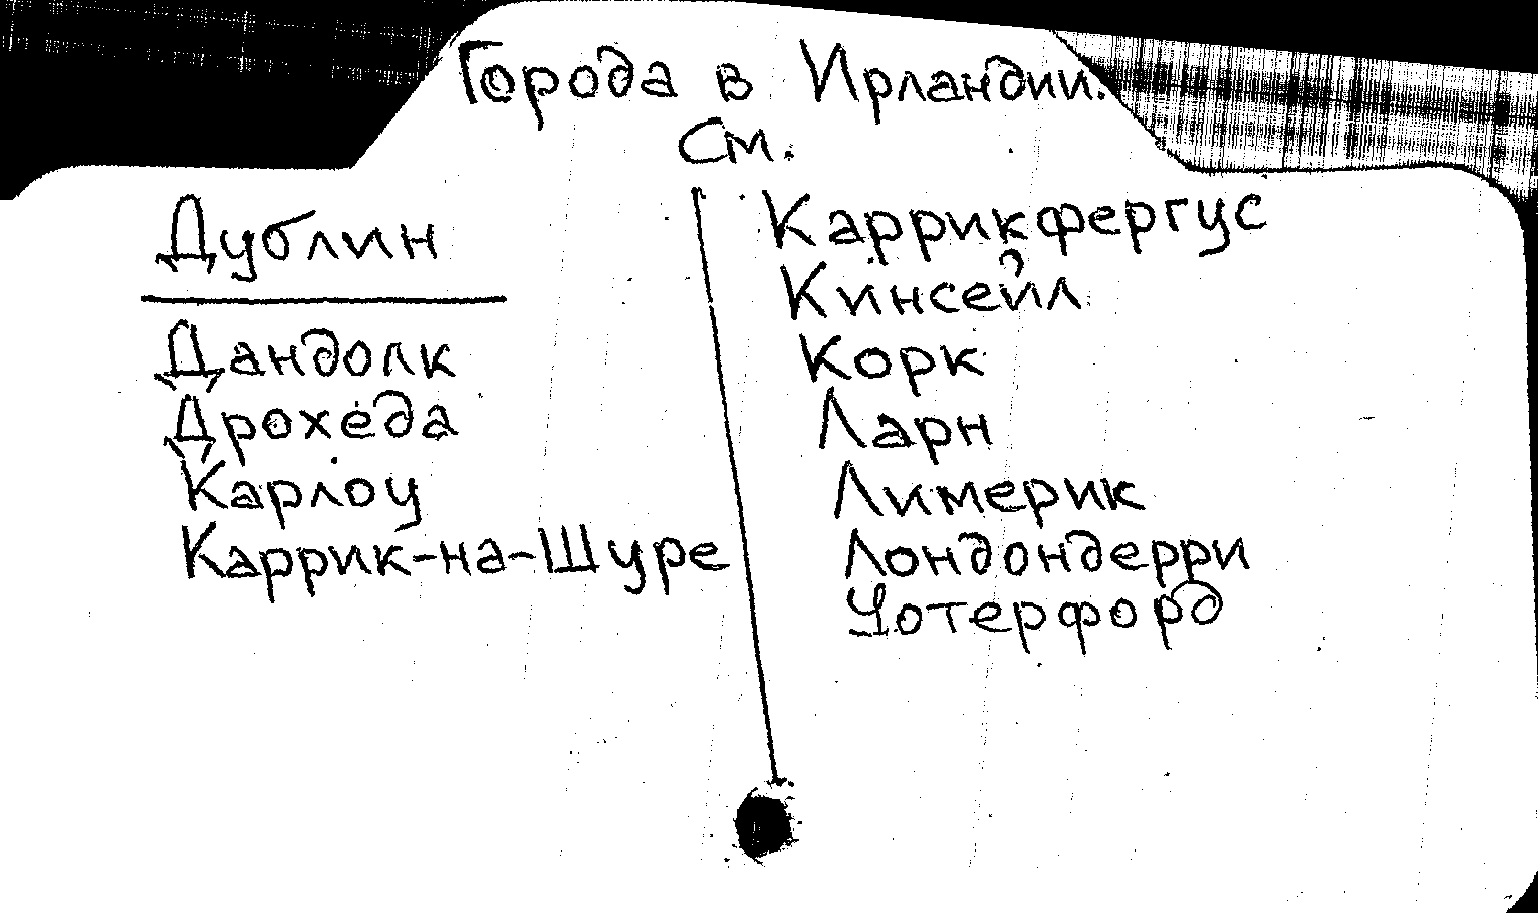 Города в Ирландии.
См.
Дублин
Дандолк
Дрохеда
Карлоу
Каррик-на-Шуре
Каррикфергус
Кинсейл
Корк
Ларн
Лимерик
Лондондерри
Уотерфорд